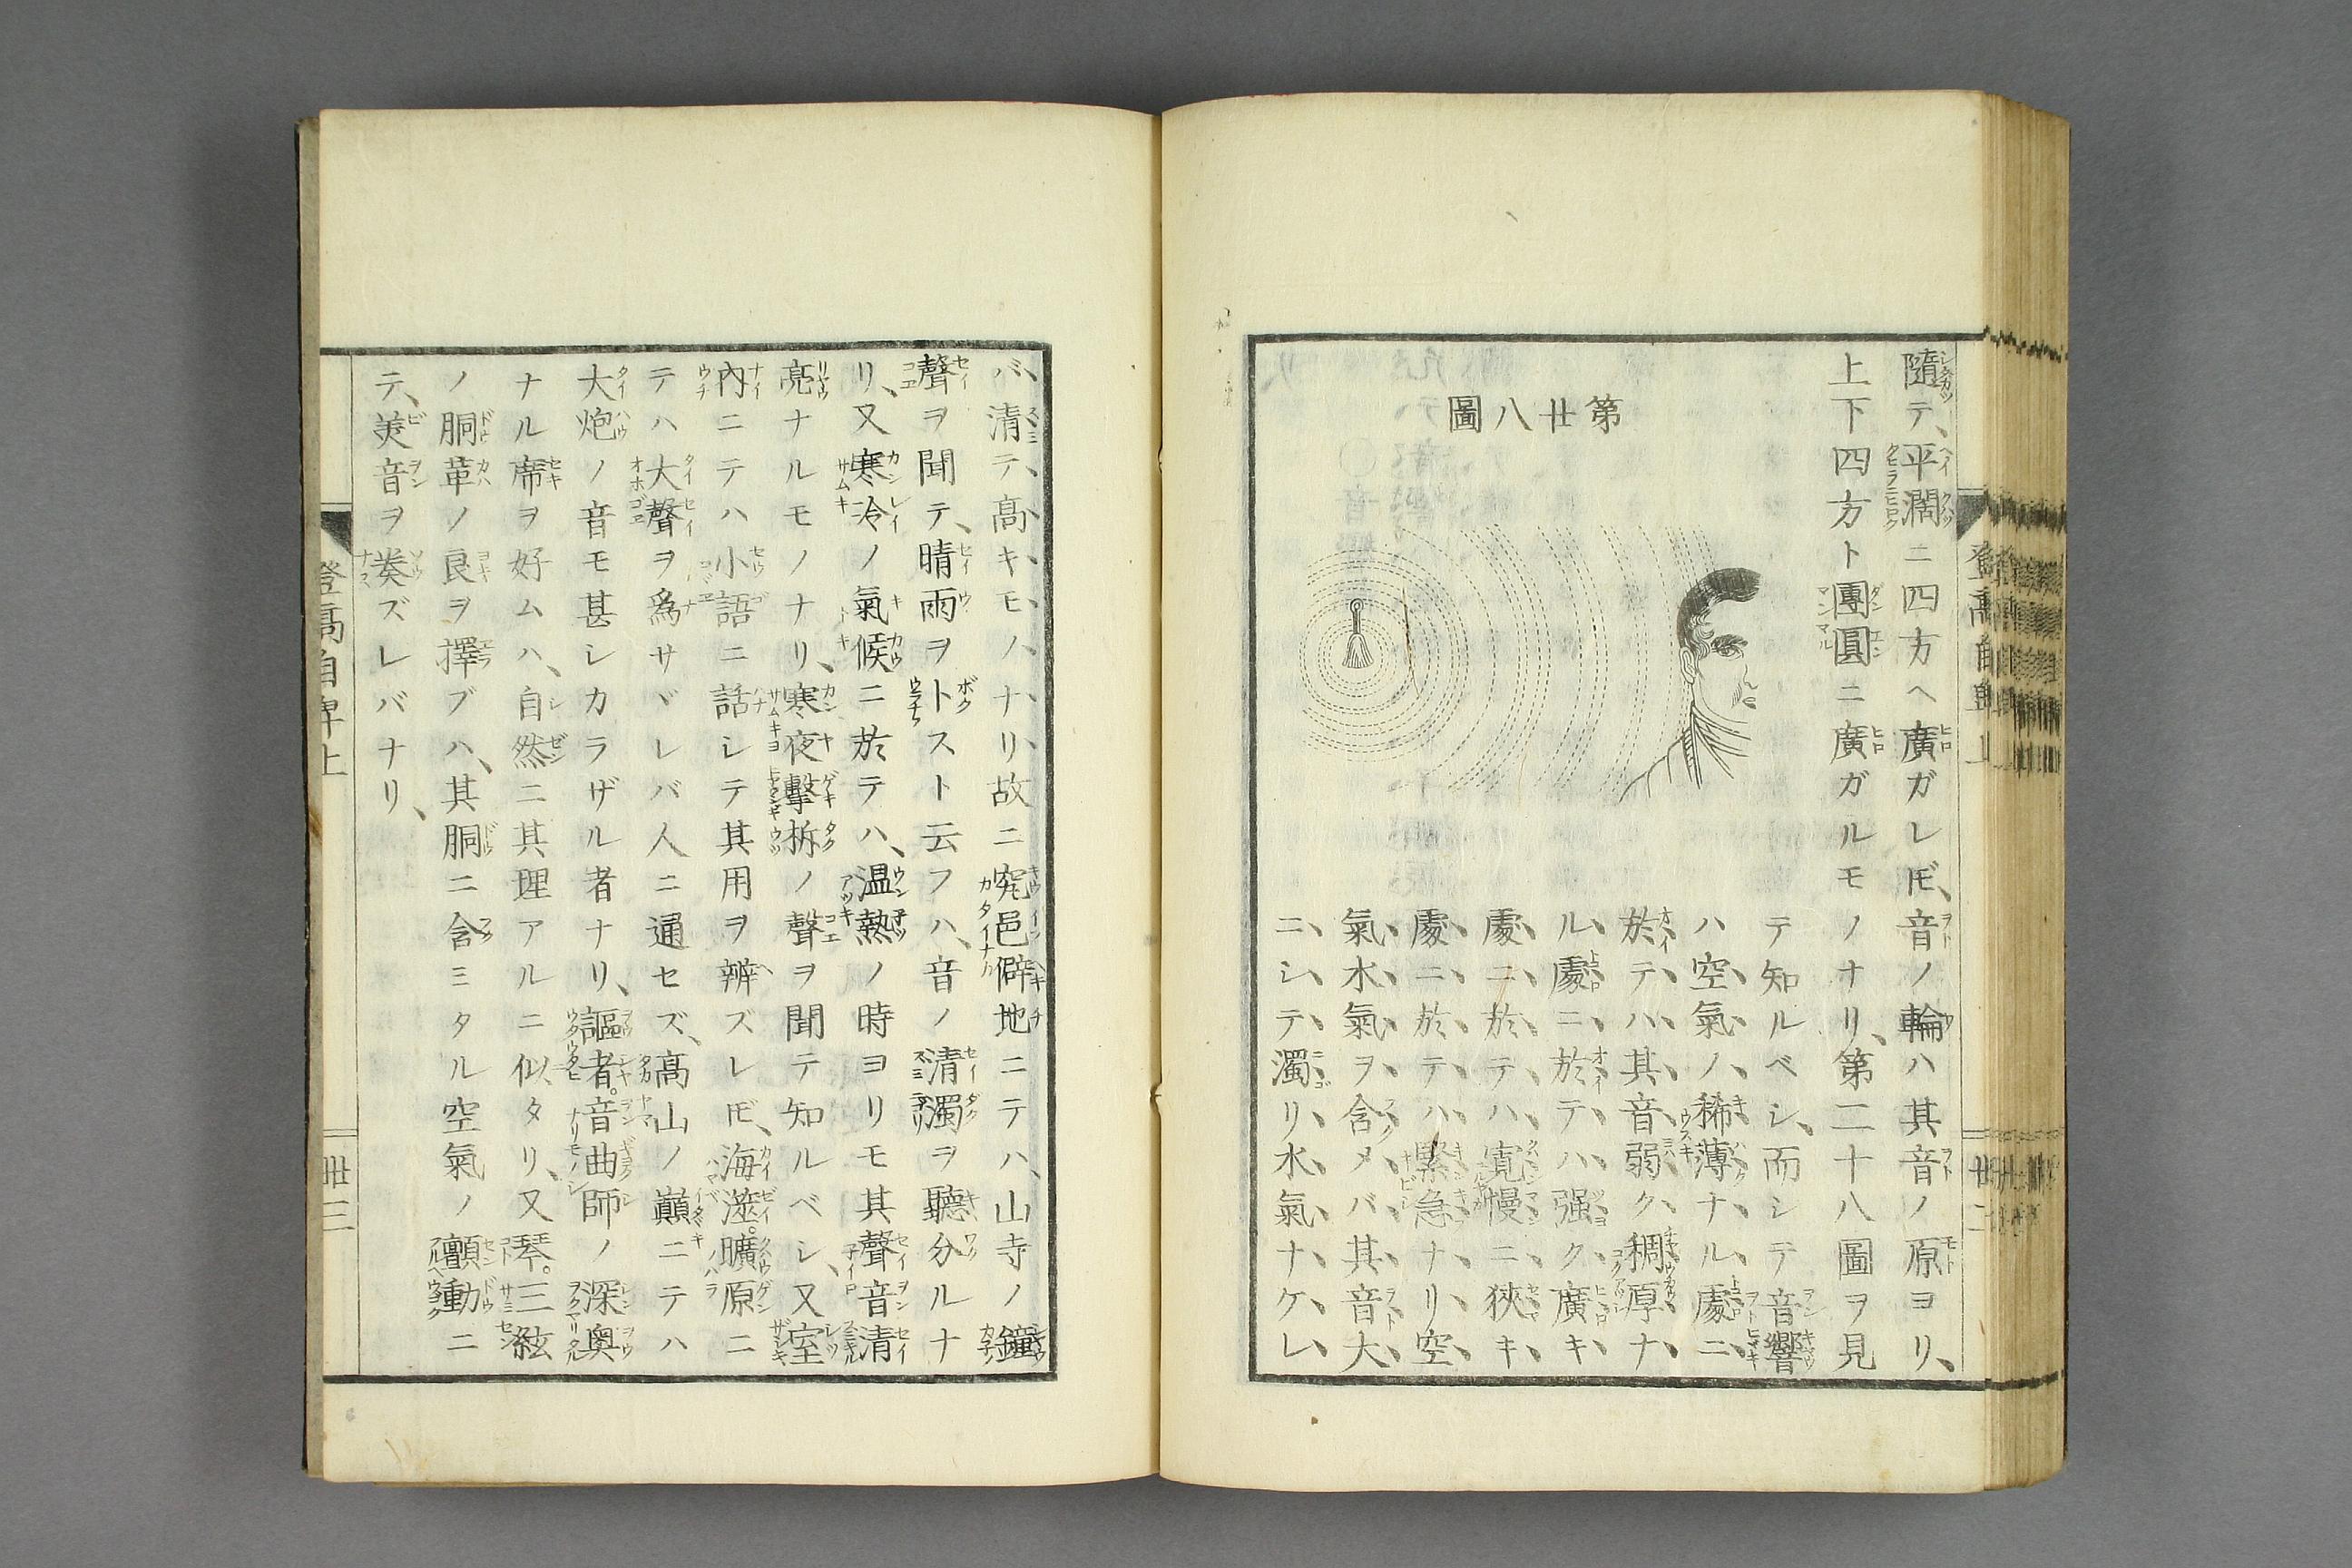 隨テ、平濶ニ四方ヘ廣ガレ𪜈、音ノ輪ハ其音ノ原ヨリ、
上下四方ト團圓ニ廣ガルモノナリ、第二十八圖ヲ見
第廿八圖
テ知ルベシ、而シテ音響
ハ空氣ノ稀薄ナル處ニ
於テハ其音弱ク、稠厚ナ
ル處ニ於テハ强ク廣キ
處ニ於テハ寛慢ニ狹キ
處ニ於テハ緊急ナリ空
氣水氣ヲ含メバ其音大
ニシテ濁リ水氣ナケレ
バ清テ高キモノナリ故ニ窮邑僻地ニテハ、山寺ノ鐘
聲ヲ聞テ、晴雨ヲトスト云フハ、音ノ清濁ヲ聽分ルナ
リ、又寒冷ノ氣候ニ於テハ、温熱ノ時ヨリモ其聲音清
亮ナルモノナリ、寒夜擊柝ノ聲ヲ聞テ知ルベシ、又室
內ニテハ小語ニ話シテ其用ヲ辨ズレ𪜈、海澨。曠原ニ
テハ大聲ヲ爲サヾレバ人ニ通セズ、高山ノ巓ニテハ
大炮ノ音モ甚シカラザル者ナリ、謳者。音曲師ノ深奧
ナル席ヲ好ムハ、自然ニ其理アルニ似タリ、又琴。三絃
ノ胴革ノ良ヲ擇ブハ、其胴ニ含ミタル空氣ノ顫動ニ
テ、美音ヲ奏ズレバナリ、
登高自卑上
卅三